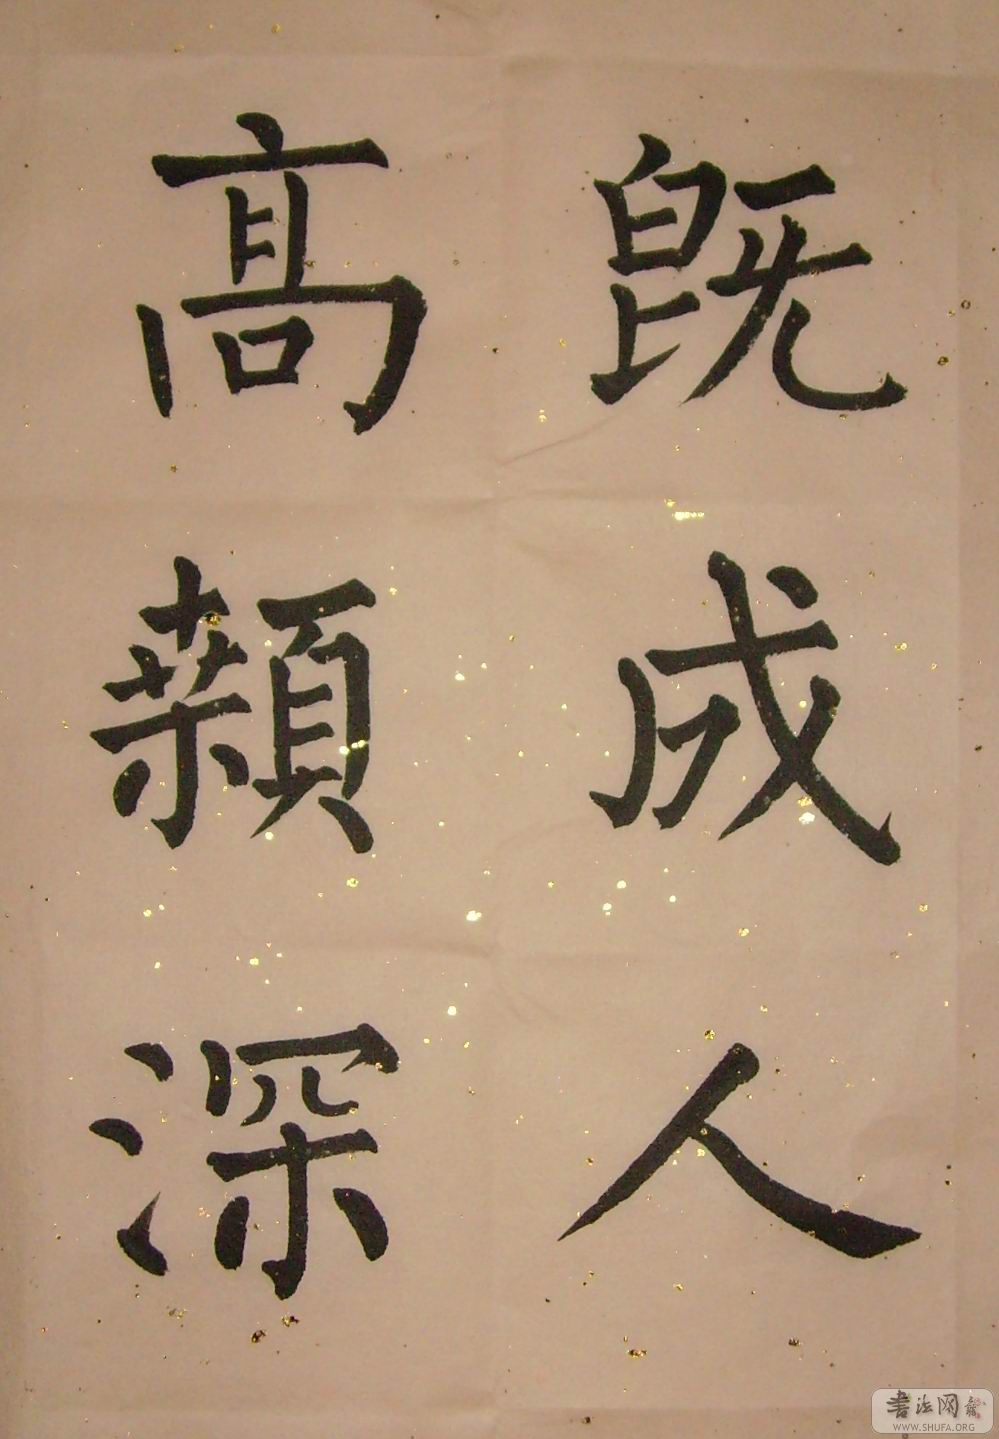 既成人
高顙深
書法网
WWW.SHUFA.ORG